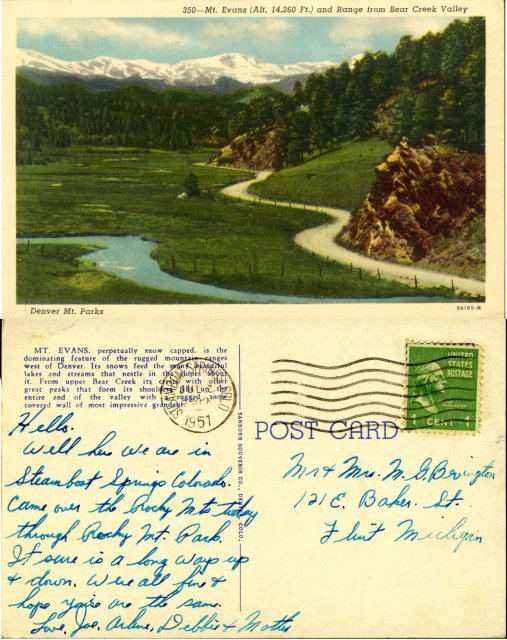 350—Mt. Evans (Alt. 14,260 Ft.) and Range from Bear Creek Valley
Denver Mt. Parks
3A185-N
MT. EVANS, perpetually snow capped, is the
dominating feature of the rugged mountain ranges
west of Denver. Its snows feed the many beautiful
lakes and streams that nestle in the slopes about
it. From upper Bear Creek its crest with other
great peaks that form its shoulders fill up the
entire end of the valley with a rugged snow
covered wall of most impressive grandeur.
1951
UNITED
STATES
POSTAGE
WASHINGTON
CENT 1
SANBORN SOUVENIR CO., DENVER, COLO.
POST CARD
Hello.
Well here we are in
Steamboat Springs Colorado.
Came over the Rocky Mts today
through Rocky Mt. Park.
It sure is a long ways up
& down. Were all fine &
hope you're are the same.
Love, Joe, Arlene, Debbie & Mother
Mr & Mrs. M. G. Bevington
121 E. Baker. St.
Flint Michigan